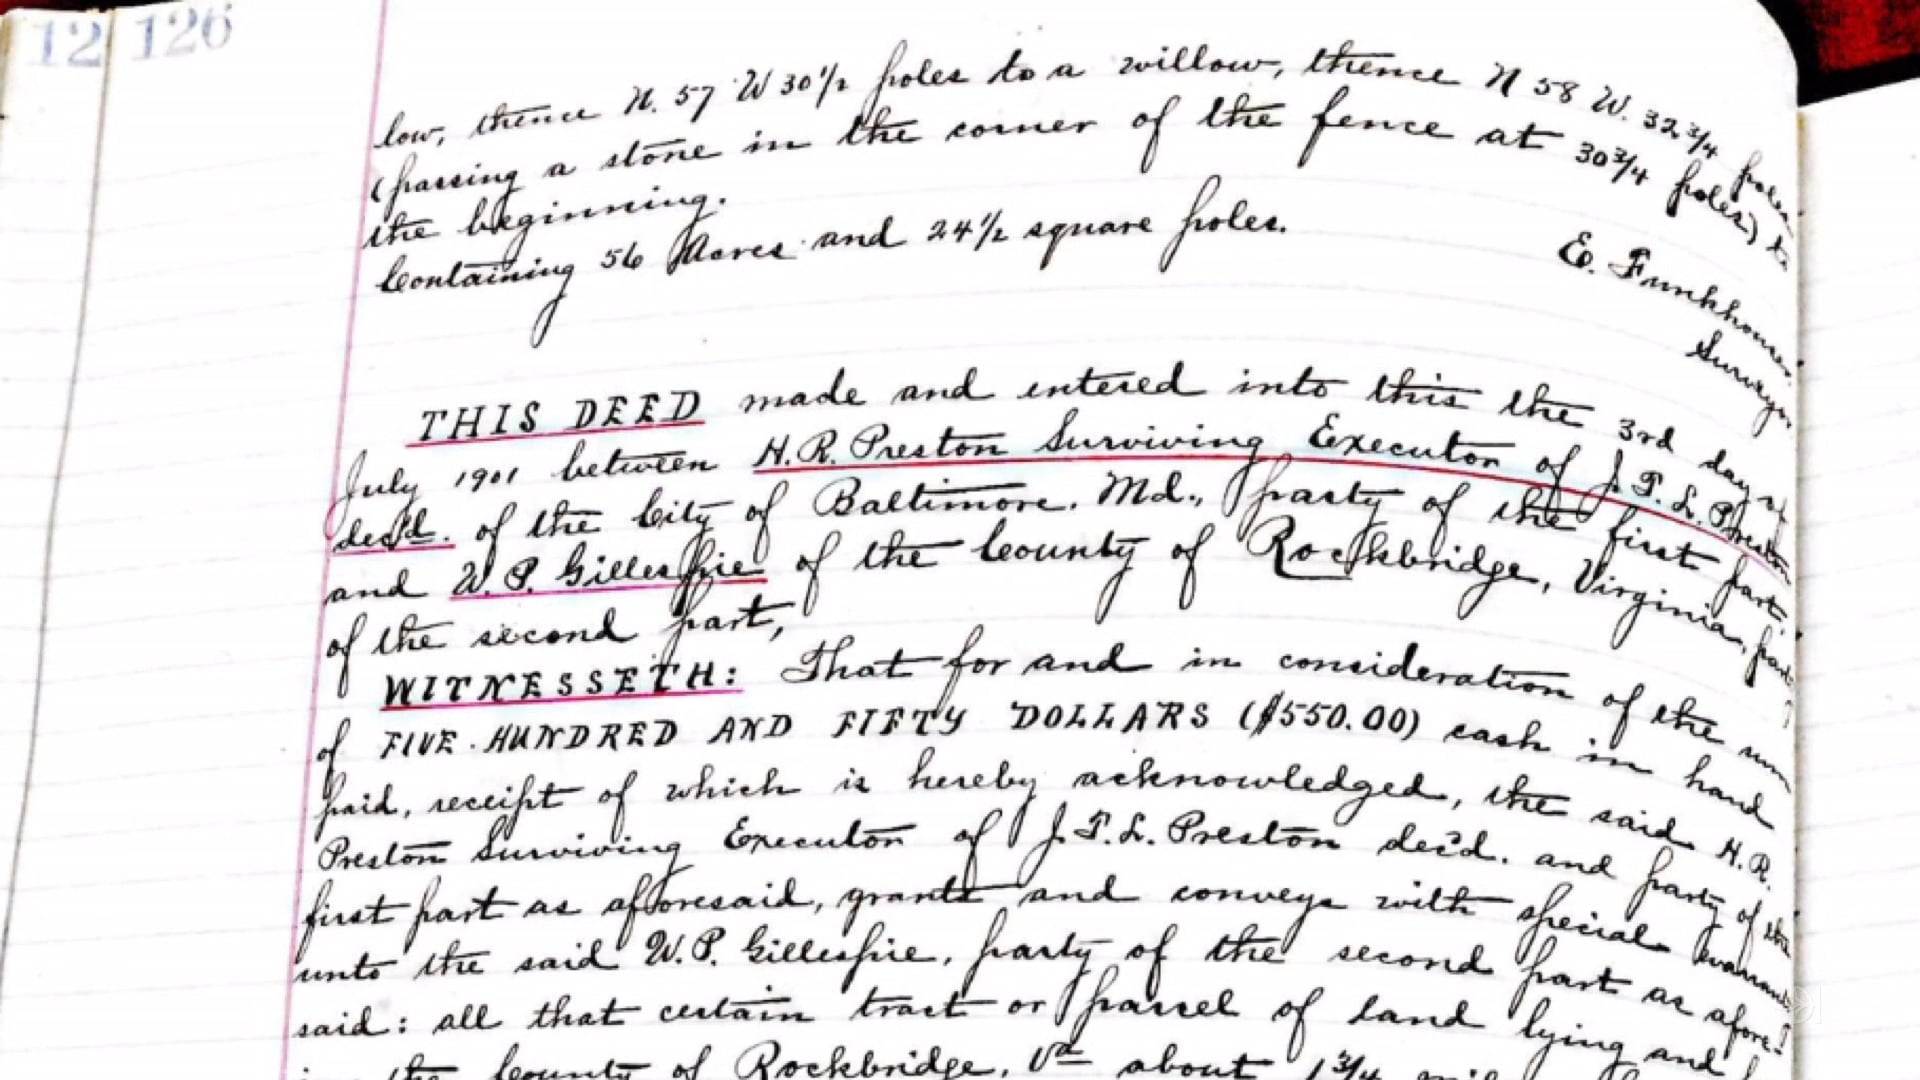 12 126
low, thence N. 57 W 30 1/2 poles to a willow, thence N 58 W. 32 3/4 poles
(passing a stone in the corner of the fence at 30 3/4 poles) to
the beginning.
Containing 56 Acres and 24 1/2 square poles.
E. Funkhouser
Surveyor
THIS DEED made and entered into this the 3rd day of
July 1901 between H.R. Preston Surviving Executor of J.T.L. Preston
dec'd. of the City of Baltimore, Md., party of the first part,
and W.P. Gillespie of the County of Rockbridge, Virginia, party
of the second part,
WITNESSETH: That for and in consideration of the sum
of FIVE HUNDRED AND FIFTY DOLLARS ($550.00) cash in hand
paid, receipt of which is hereby acknowledged, the said H.R.
Preston Surviving Executor of J.T.L. Preston dec'd. and party of the
first part as aforesaid, grants and conveys with special
unto the said W.P. Gillespie, party of the second part as afore-
said: all that certain tract or parcel of land lying and
the County of Rockbridge, Va about 1 3/4